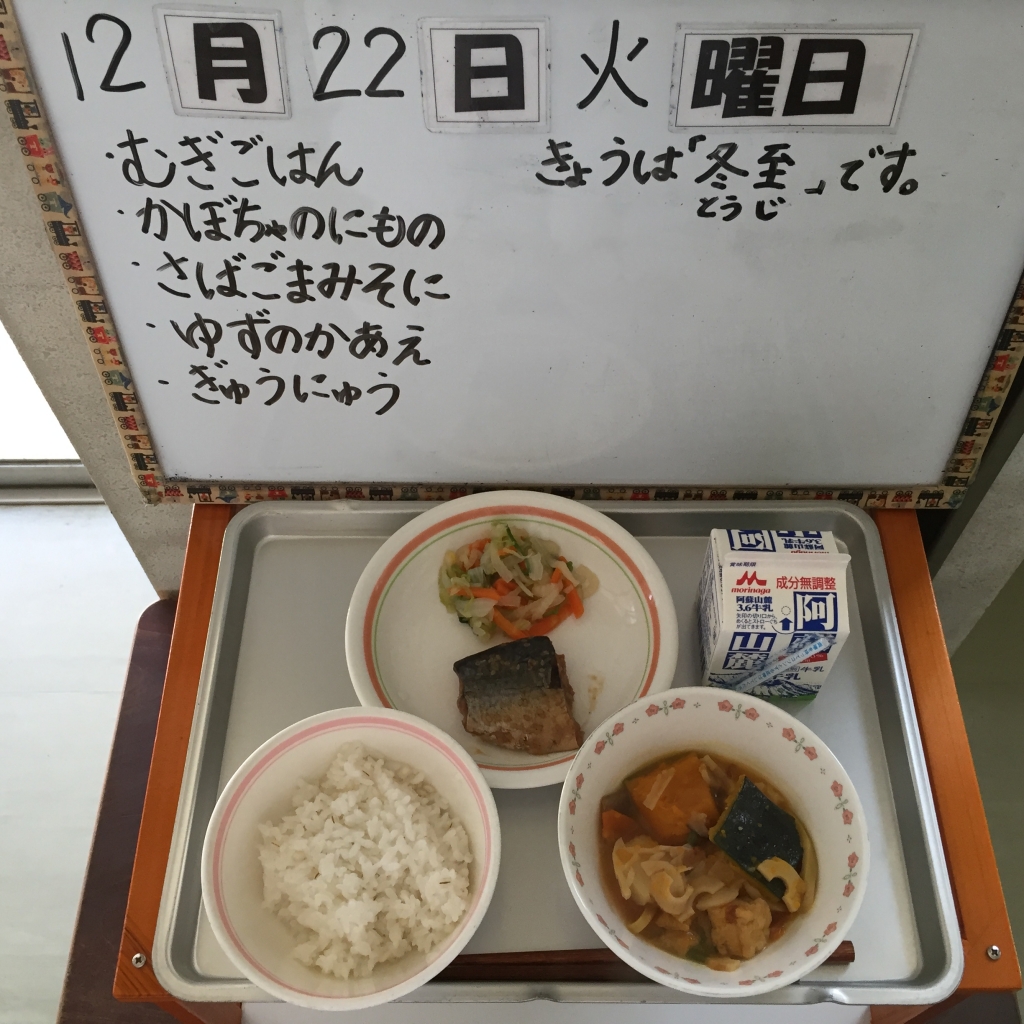 12月22日火曜日
・むぎごはん
・かぼちゃのにもの
・さばごまみそに
・ゆずのかあえ
・ぎゅうにゅう
きょうは「冬至」です。
とうじ
阿
3.6牛乳
賞味期限
morinaga
成分無調整
阿蘇山麓
3.6牛乳
阿
山麓
牛乳